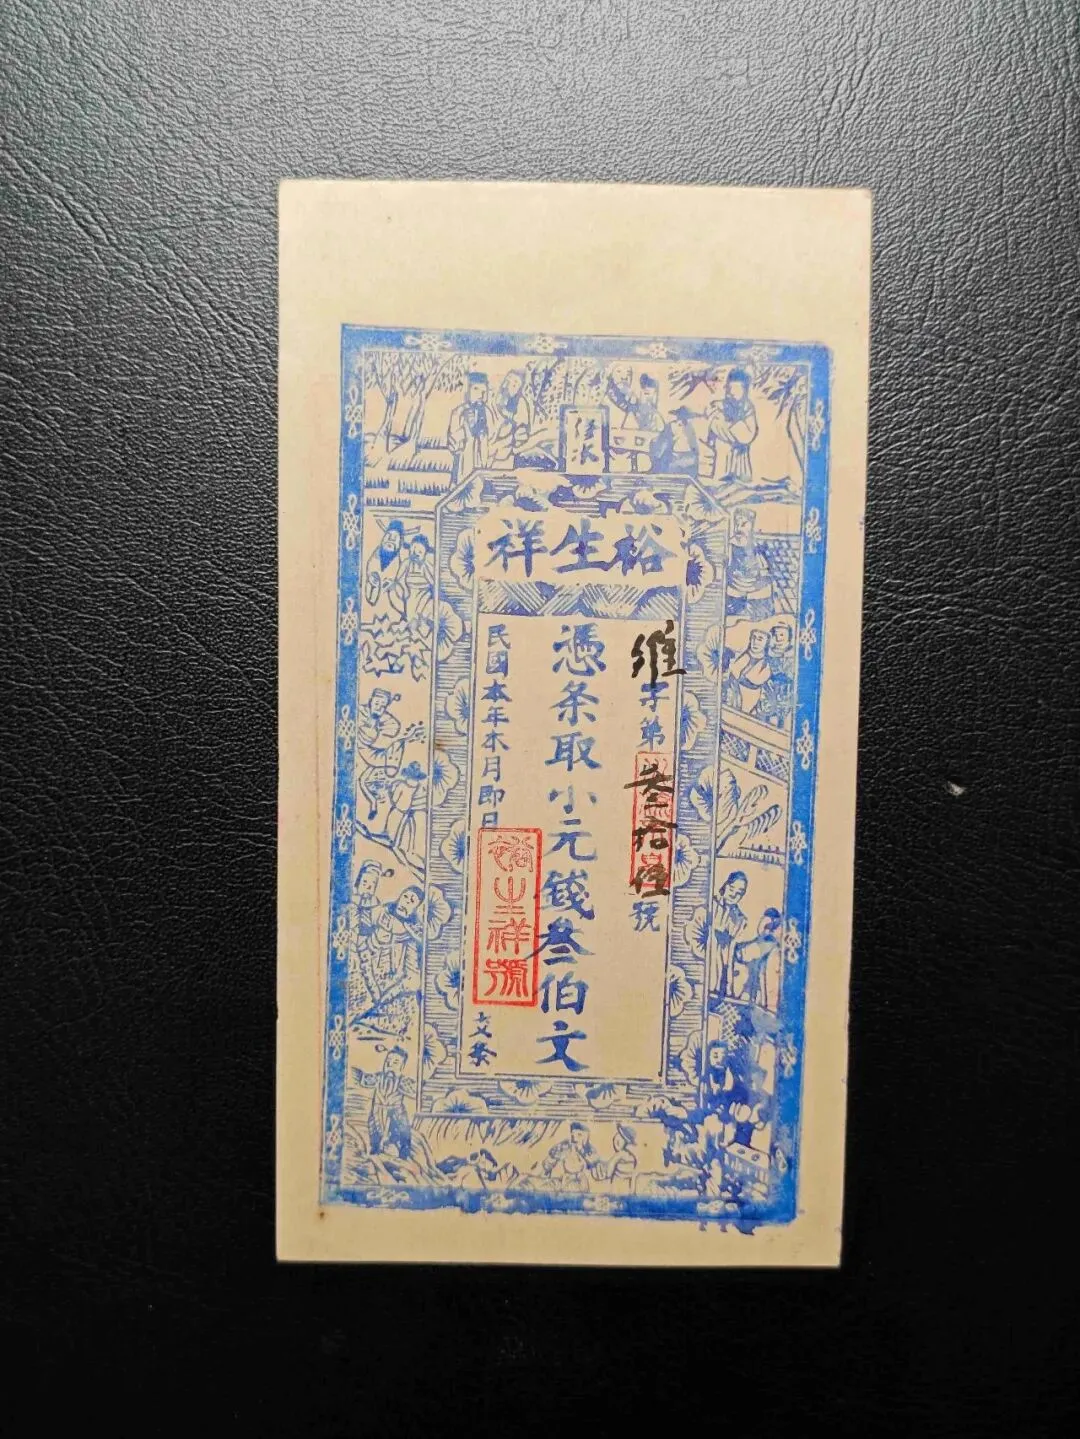 裕生祥
維字第叁拾伍號
憑条取小元錢叁伯文
民國本年本月即日
裕生祥號
支条